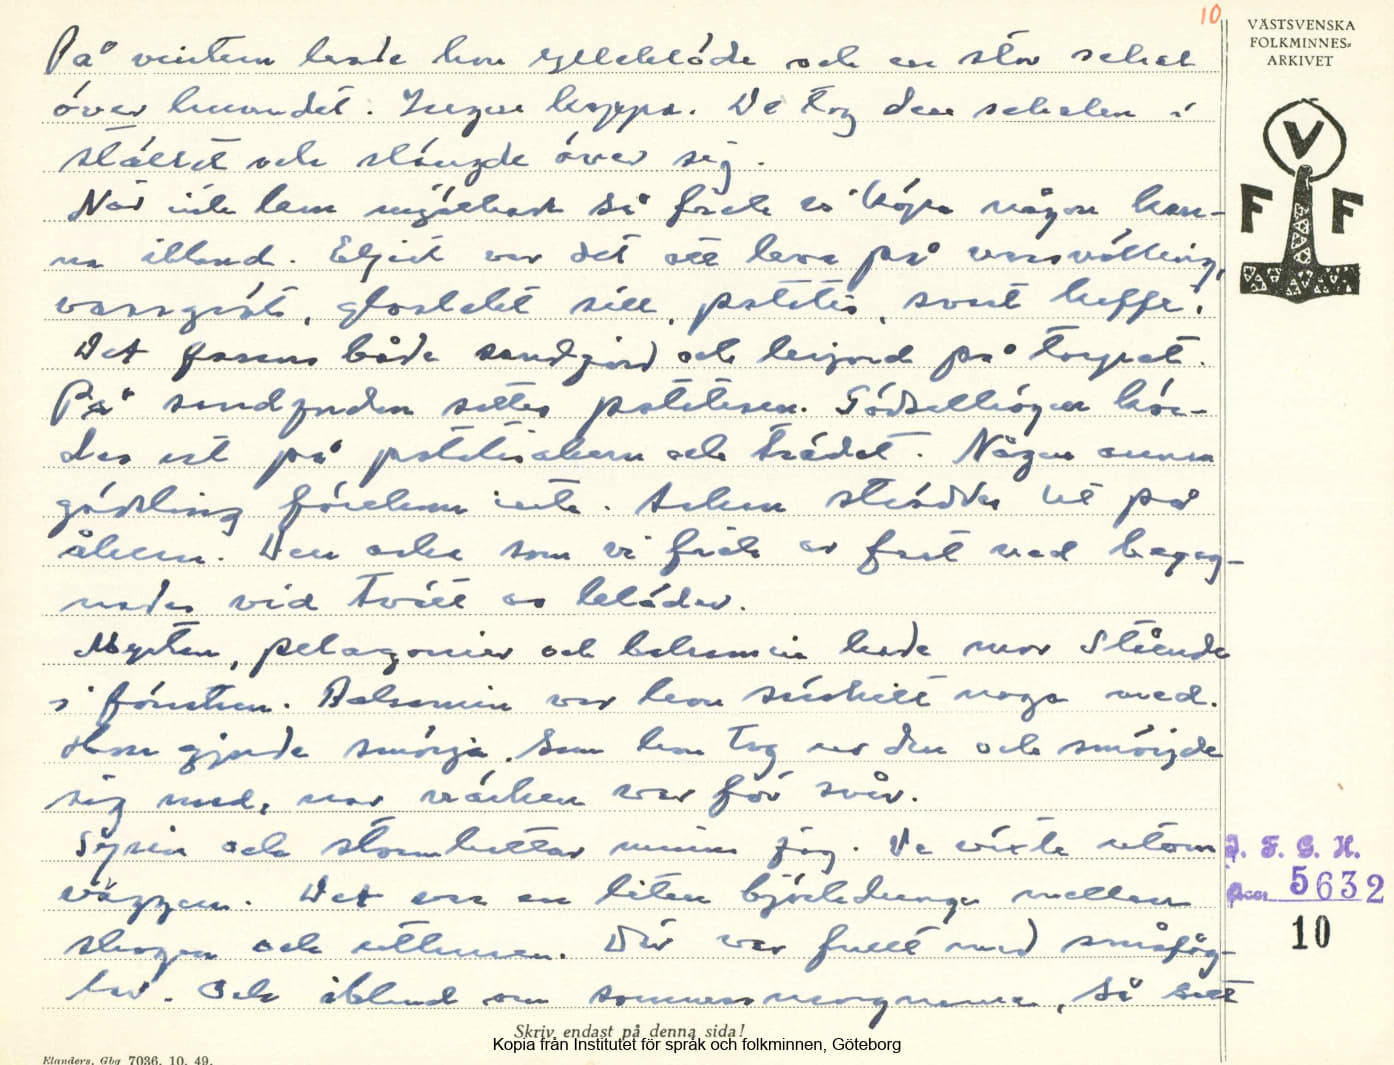 10
VÄSTSVENSKA
FOLKMINNES-
ARKIVET
V
F F
På vintern hade hon ylleklåde och en stor schal
över huvudet. Ingen kappa. De tog den schalen i
stället och slängde över sig.
När inte kom mjölkast så fick vi köpa någon kan-
na ibland. Eljest var det att leva på vassvälling,
vassgröt, glostekt sill, potatis, svart kaffe.
Det fanns både sandjord och lerjord på torpet.
På sandjorden sattes potatisen. Gödselhögen kör-
des ut på potatisåkern och trädet. Någon annan
gödsling förekom inte. Askan ströddes ut på
åkern. Den aska som vi fick av fast ved begag-
nades vid tvätt av kläder.
Myrten, pelagonier och balsamin hade mor stående
i fönstren. Balsamin var hon särskilt noga med.
Hon gjorde smörja som hon tog ur den och smörjde
sig med, när värken var för svår.
Syrén och stormhattar minns jag. De växte utom
väggen. Det var en liten björkdunge mellan
skogen och uthusen. Där var fullt med småfåg-
lar. Och ibland om sommarmorgnarna, så satt
Skriv endast på denna sida!
Kopia från Institutet för språk och folkminnen, Göteborg
Elanders, Gbg 7036. 10. 49.
I. F. G. H.
5632
10